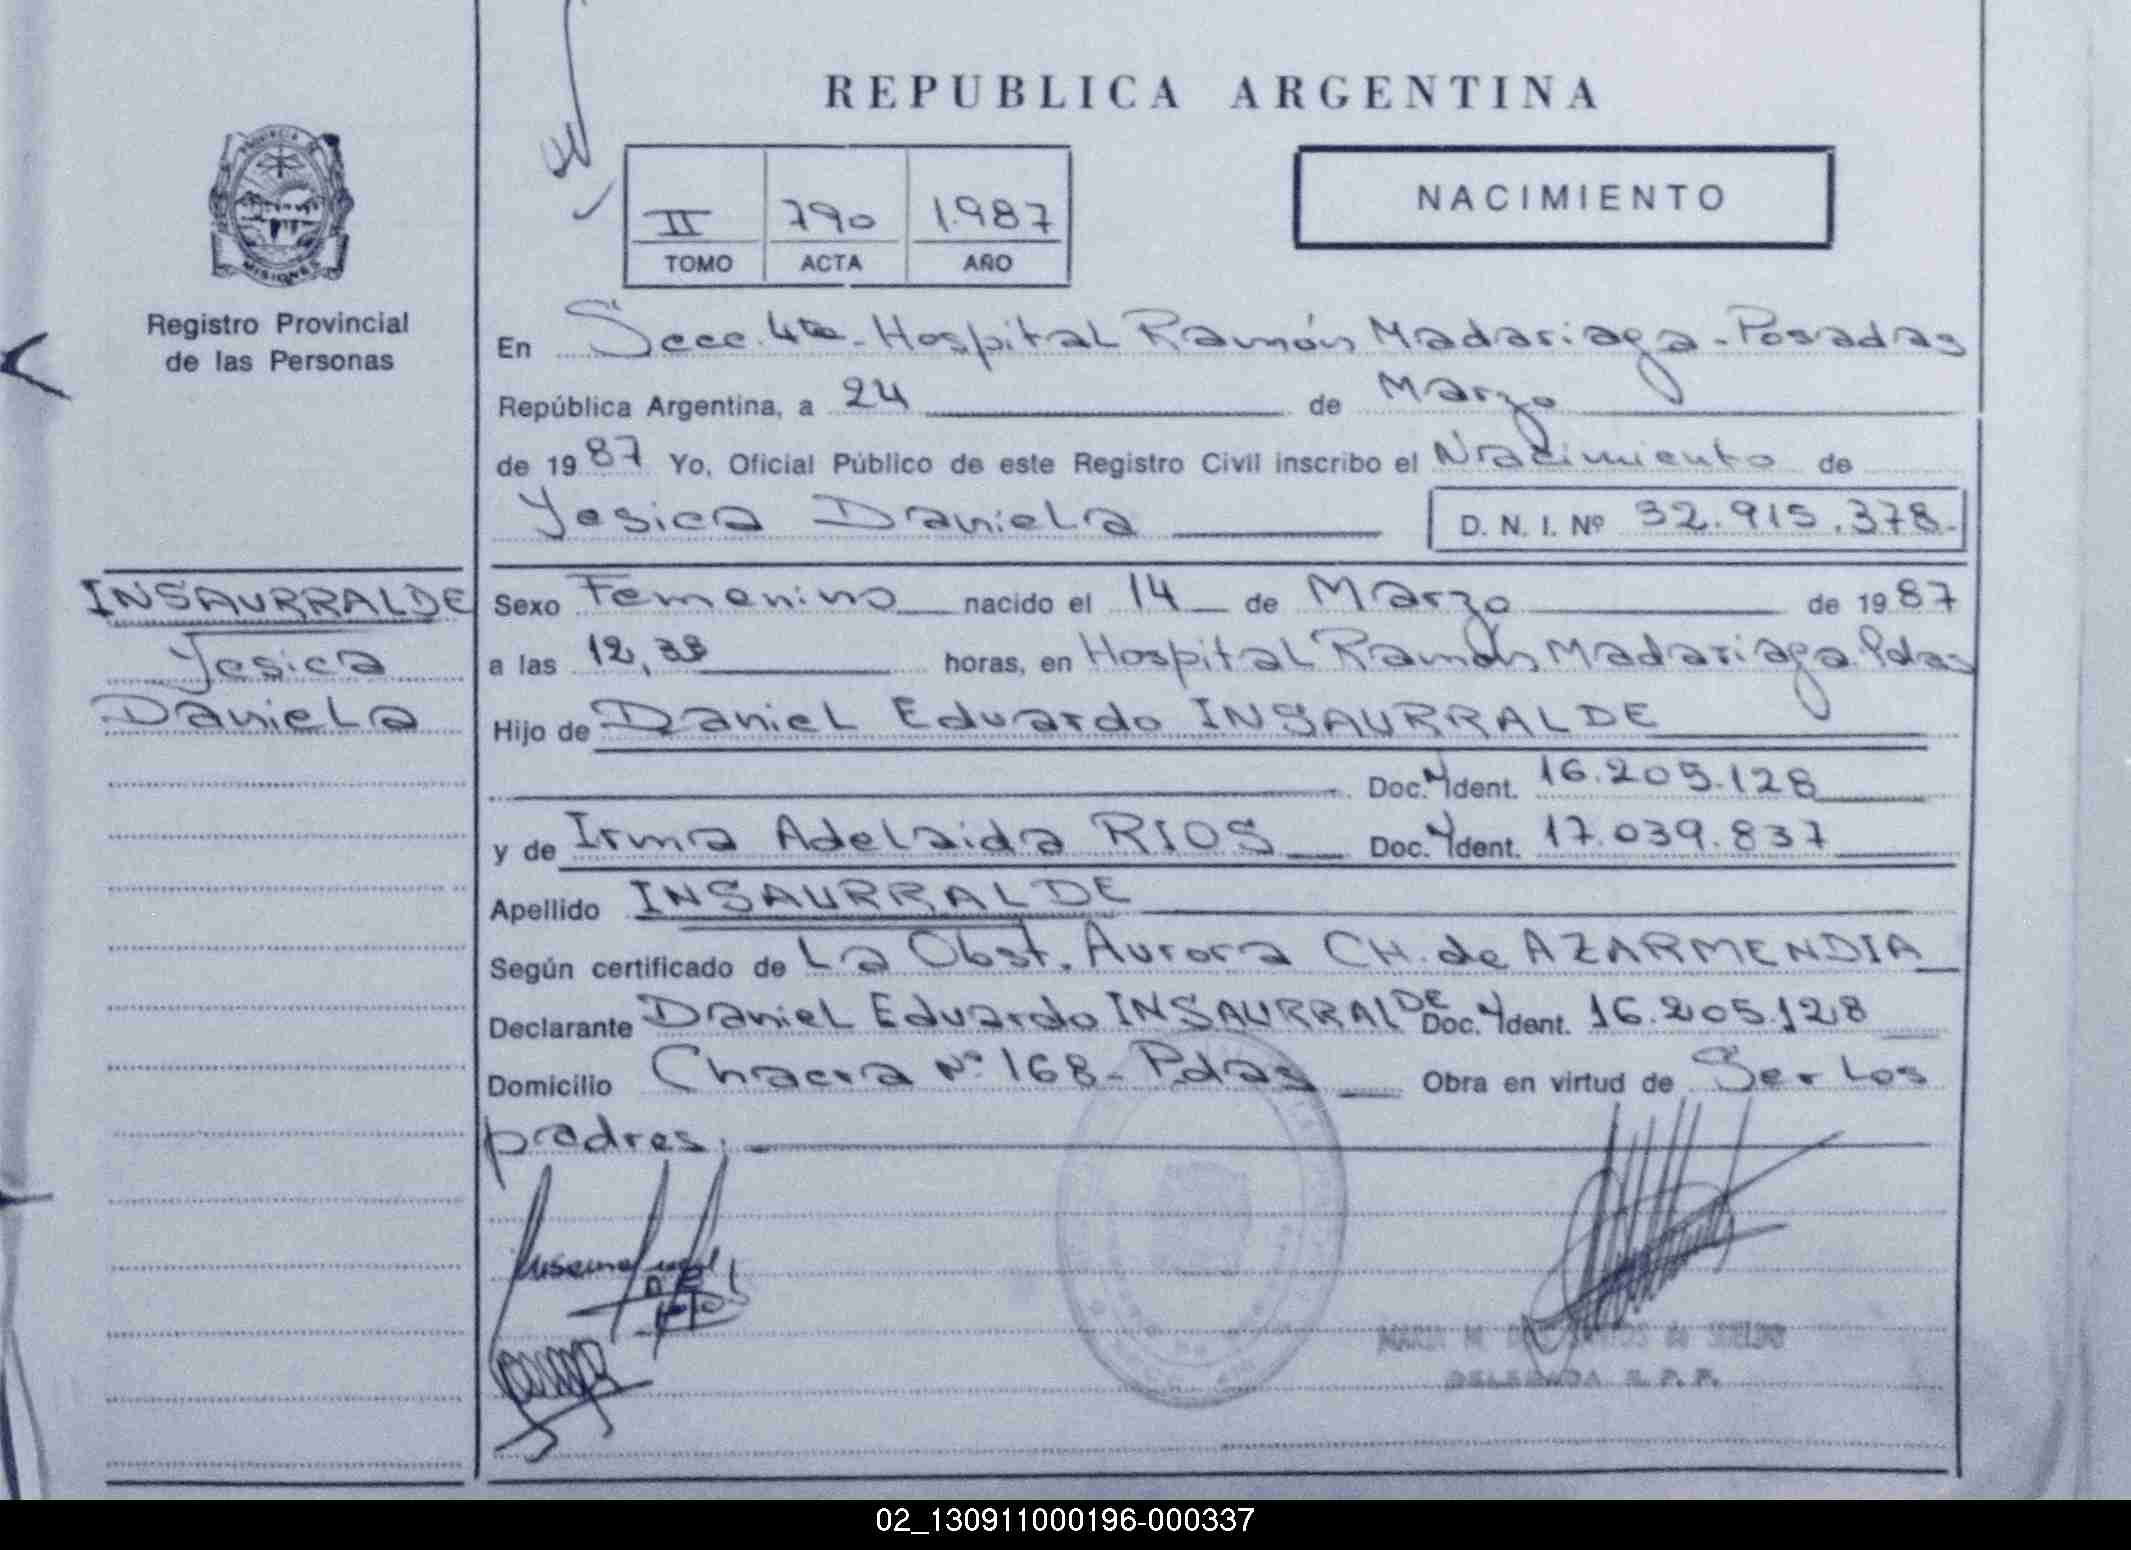 REPUBLICA ARGENTINA
NACIMIENTO
II 790 1.987
TOMO ACTA AÑO
MISIONES
Registro Provincial
de las Personas
INSAURRALDE
Yesica
Daniela
En Secc. 4ta - Hospital Ramón Madariaga - Posadas
República Argentina, a 24 de Marzo
de 1987 Yo, Oficial Público de este Registro Civil inscribo el Nacimiento de
Yesica Daniela D. N. I. Nº 32.915.378.-
Sexo Femenino nacido el 14 de Marzo de 1987
a las horas, en Hospital Ramón Madariaga Pdas
Hijo de Daniel Eduardo INSAURRALDE
Doc. Ident. 16.205.128
y de Irma Adelaida RIOS Doc. Ident. 17.039.837
Apellido INSAURRALDE
Según certificado de La Obst. Aurora CH. de AZARMENDIA
Declarante Daniel Eduardo INSAURRALDE Doc. Ident. 16.205.128
Domicilio Chacra Nº 168 - Pdas Obra en virtud de Ser los
padres.
DELEGADA R. P. P.
02_130911000196-000337